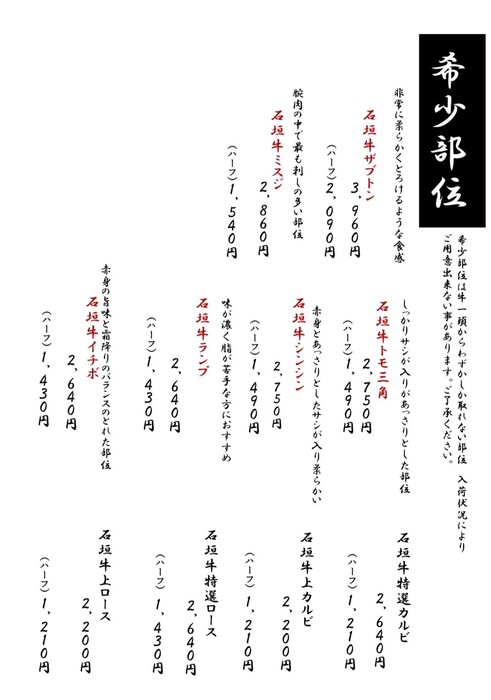 希少部位
希少部位は牛一頭からわずかしか取れない部位 入荷状況により
ご用意出来ない事があります。ご了承ください。
非常に柔らかくとろけるような食感
石垣牛ザブトン
3,960円
(ハーフ)2,090円
腕肉の中で最も刺しの多い部位
石垣牛ミスジ
2,860円
(ハーフ)1,540円
しっかりサシが入りがあっさりとした部位
石垣牛トモ三角
2,750円
(ハーフ)1,490円
赤身とあっさりとしたサシが入り柔らかい
石垣牛シンシン
2,750円
(ハーフ)1,490円
味が濃く脂が苦手な方におすすめ
石垣牛ランプ
2,640円
(ハーフ)1,430円
赤身の旨味と霜降りのバランスのとれた部位
石垣牛イチボ
2,640円
(ハーフ)1,430円
石垣牛特選カルビ
2,640円
(ハーフ)1,210円
石垣牛上カルビ
2,200円
(ハーフ)1,210円
石垣牛特選ロース
2,640円
(ハーフ)1,430円
石垣牛上ロース
2,200円
(ハーフ)1,210円